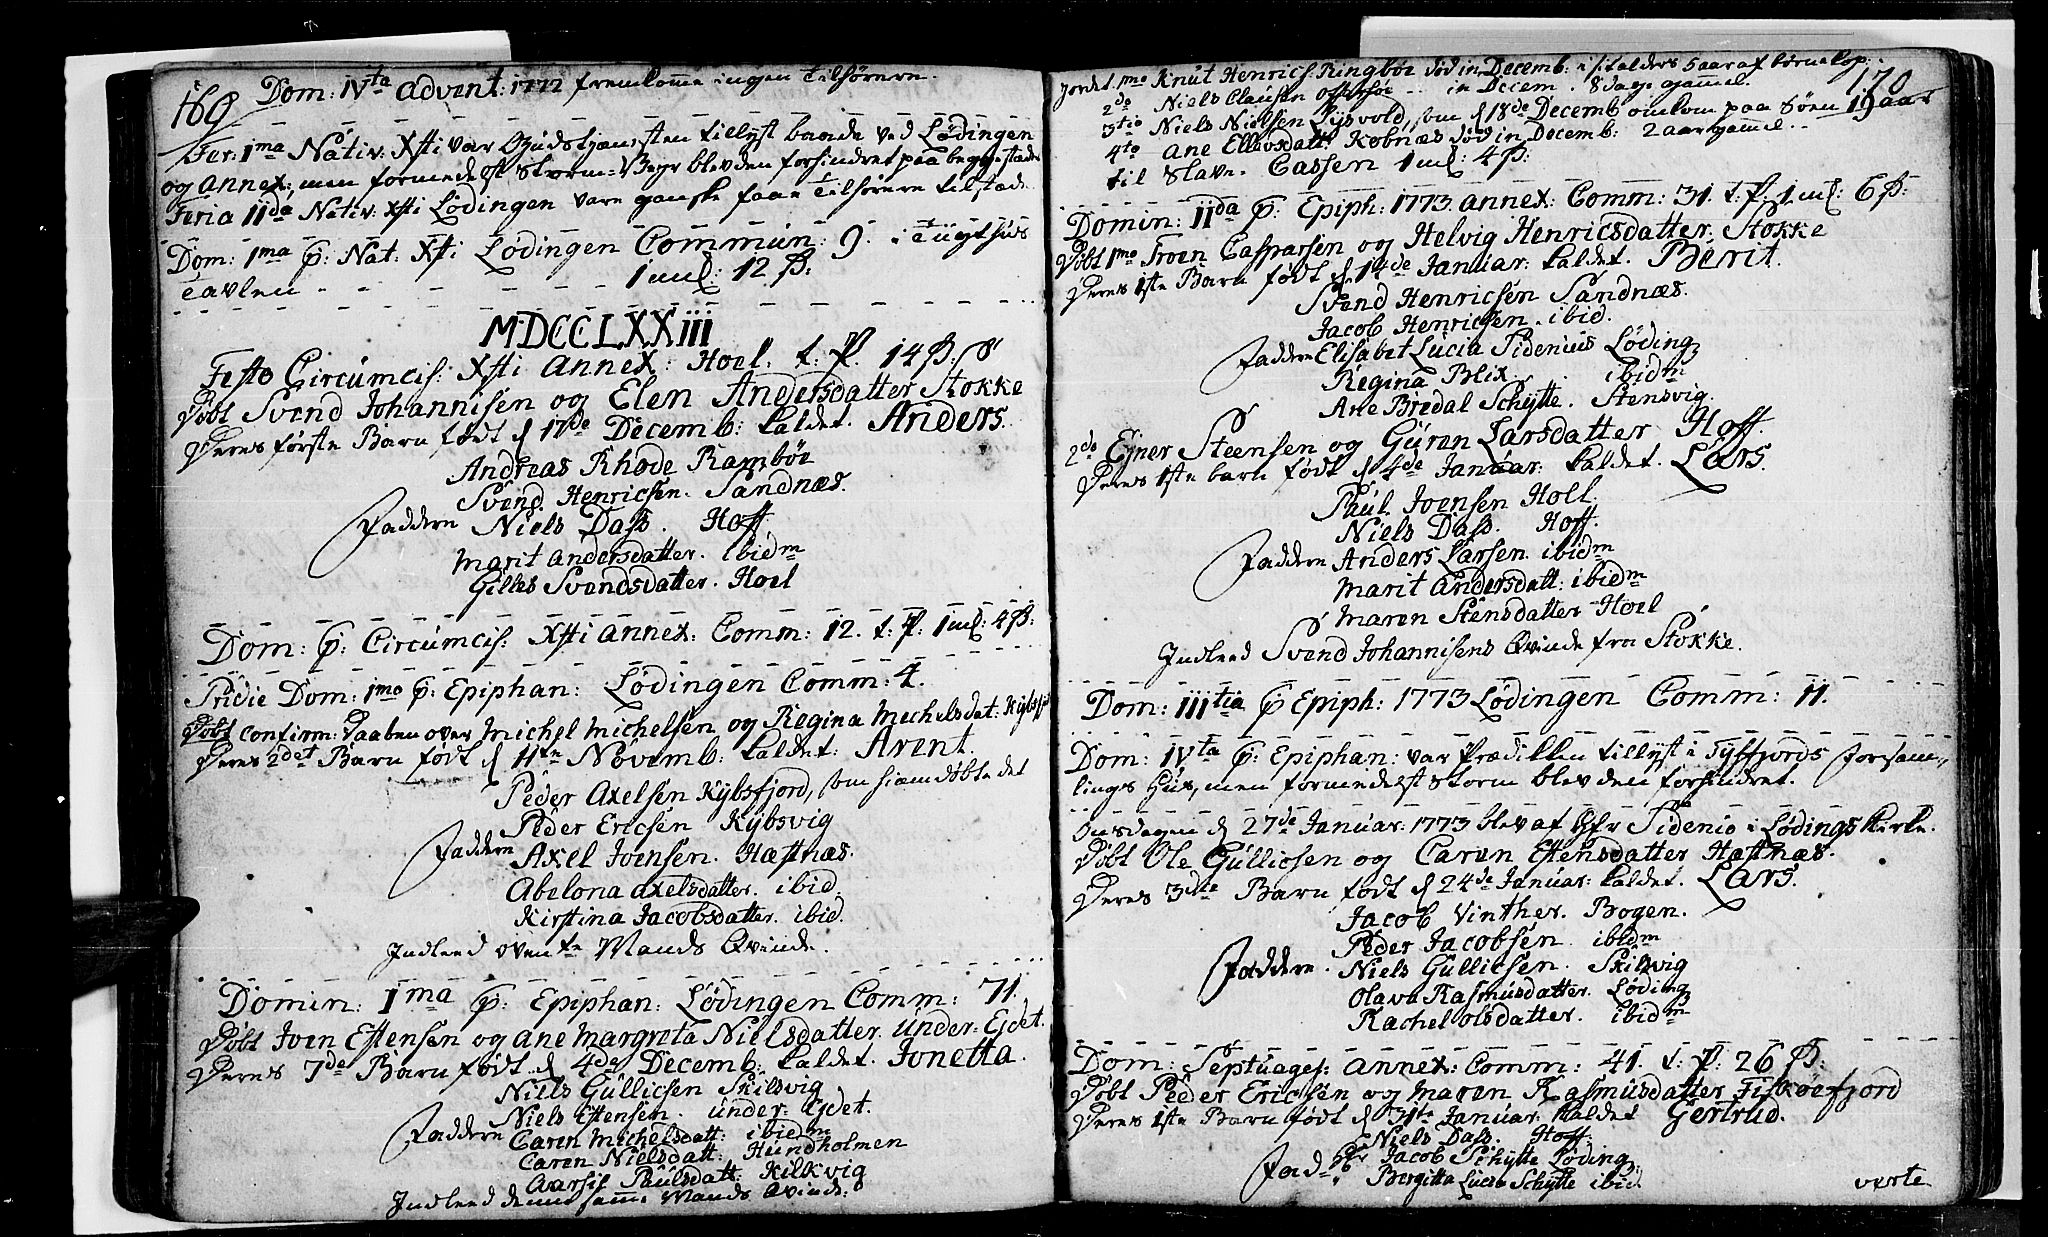 169
Dom: IVta Advent: 1772 fremkomme ingen Tilhørere.
Fer: 1ma Nativ: Xsti var Gudstienisten tillyst baade ved Lødingen
og Annex: men formedelst Storm-Veyr blev den forhindret paa begge stæder
Feria IIda Nativ: Xsti Lødingen vare ganske faae Tilhørere tilstæde
Dom: 1ma p: Nat: Xsti Lødingen Commun: 9. i Tugthuus
Tavlen 1 mk: 12 ß:
MDCCLXXiii
Festo Circumcis: Xsti Annex: Hoel. t: P. 14 ß:
Døbt Svend Johannisen og Elen Andersdatter Stokke
Deres første Barn født d 17de Decemb: kaldet. Anders.
Andreas Rhode Rambøe
Svend Henricsen. Sandnæs.
Faddere Niels Dass. Hoff.
Marit Andersdatter. ibidm
Gilles Svendsdatter. Hoel
Dom: p: Circumcis: Xsti Annex: Comm: 12. t: P. 1 mk: 4 ß:
Pridie Dom: 1ma p: Epiphan: Lødingen Comm: 4.
Døbt Confirm: Daaben over Michel Michelsen og Regina Mechelsdat: Kybsfjord
Deres 2det Barn født d 11te Novemb: kaldet: Arent.
Peder Axelsen Kybsfjord, som hiemdøbte det
Peder Ericsen Kybsvig
Faddere Axel Joensen. Hæstnæs.
Abelona Axelsdatter. ibid.
Kirstina Jacobsdatter. ibid.
Indleed ovente Mands Qvinde.
Domin: 1ma p: Epiphan: Lødingen Comm: 71.
Døbt Joen Estensen og Ane Margreta Nielsdatter. Under-Ejdet.
Deres 7de Barn født. d 4de Decemb: kaldet. Jonetta.
Niels Gullicsen Skilsvig
Niels Estensen. under-Ejdet.
Faddere Caren Michelsdatt: ibidm
Caren Nielsdatt: Hundholmen
Paulsdatt: Kilkvig
Indleed denne samme Mands Qvinde:
170
Jordet. 1mo Knut Henrics: Ringbøe død in Decemb: i sit alders 5 aar af
2do Niels Clausen Offersøe .. in Decem. 8 dage gammel.
3tio Niels Nielsen, som d 18de Decemb omkom paa Søen 19 aar
4to Ane Ellevsdatt: Kobnæs død in Decemb: 2 aar gammel..
til Slave-Cassen 1 mk: 4 ß:
Domin: IIda p: Epiph: 1773. Annex: Comm: 31. t: P. 1 mk: 6 ß:
Døbt 1mo Troen Casparsen og Helvig Henricsdatter. Stokke
Deres 1ste Barn født d. 14de Januar: kaldet. Berit.
Svend Henricsen Sandnæs.
Jacob Henricsen. ibid.
Faddere Elisabet Lucia Sidenius Løding
Regina Blix. ibidm
Ane Bredal Schytte. Stensvig.
2do Ejner Steensen og Guren Larsdatter Hoff.
Deres 1ste barn født d 4de Januar: kaldet. Lars.
Paul Joensen Hoel.
Niels Dass. Hoff.
Faddere Anders Larsen. ibidm
Marit Andersdatt: ibidm
Maren Stensdatter Hoel
Indleed Svend Johannisens Qvinde fra Stokke.
Dom: IIItia p: Epiph: 1773 Lødingen Comm: 11.
Dom: IVta p: Epiphan: var Prædiken tillyst i Tysfjords Forsam-
lings Huus, men formedelst Storm blev den forhindret.
Onsdagen d 27de Januar: 1773 blev af Hr Sidenio i Lødings Kirke.
Døbt Ole Gullicsen og Caren Estensdatter Hæstnæs.
Deres 3die Barn født d 24de Januar: kaldet. Lars.
Jacob Vinther. Bogen.
Peder Jacobsen. ibidm
Faddere. Niels Gullicsen. Skilsvig
Olava Rasmusdatter. Løding
Rachel Olsdatter. ibidm
Dom: Septuages: Annex: Comm: 41. t: P: 26 ß:
Døbt Peder Ericsen og Maren Rasmusdatter Fiskøefjord
Deres 1ste Barn født d 31te Januar: kaldet Gertrud.
Niels Dass. Hoff.
Fad: Hr Jacob Schytte Løding
Bergitta Lucia Schytte ibid.
verte